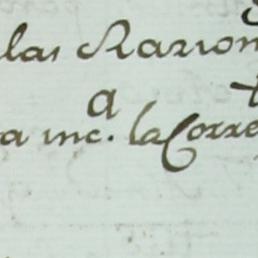 las Razon
a inc.ª la Corre